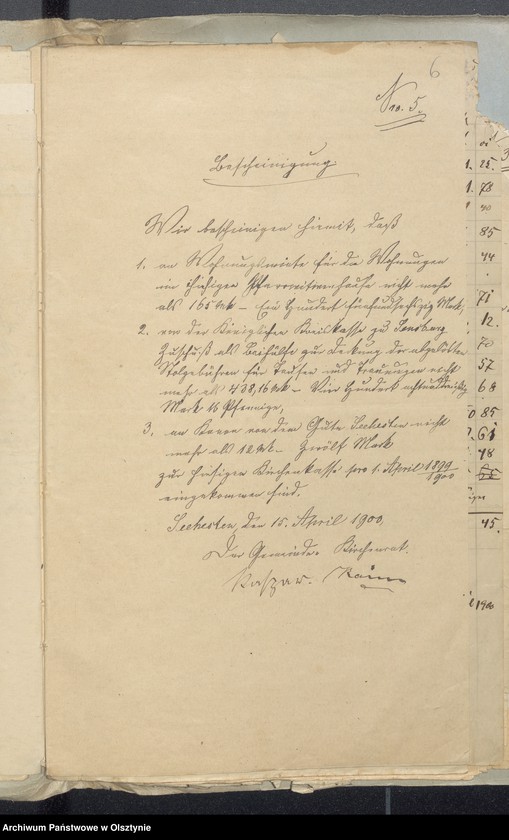 6
No. 5.
Bescheinigung
Wir bescheinigen hiemit, daß
1. an Wohnungsmiete für die Wohnungen
im hiesigen Pfarrwitwenhause nicht mehr
als 165 Mk – Ein Hundert fünfundsechszig Mark,
2. von der Königlichen Kreiskasse zu Sensburg
Zuschuß als Beihülfe zur Deckung der abgelösten
Stolgebühren für Taufen und Trauungen nicht
mehr als 438,16 Mk – Vier Hundert achtunddreißig
Mark 16 Pfennige,
3. an Kanon von dem Gute Seehesten nicht
mehr als 12 Mk – Zwölf Mark
zur hiesigen Kirchenkasse pro 1. April 1899/1900
eingekommen sind.
Seehesten, den 15. April 1900.
Der Gemeinde-Kirchenrat.
25.
78
40
85
44
71
12.
70
57
68
85
61
48
45.
1900
Archiwum Państwowe w Olsztynie